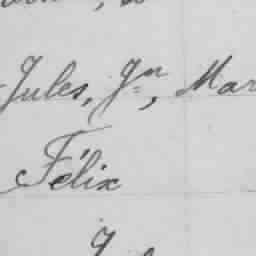 Jules, Jn, Mar
Félix